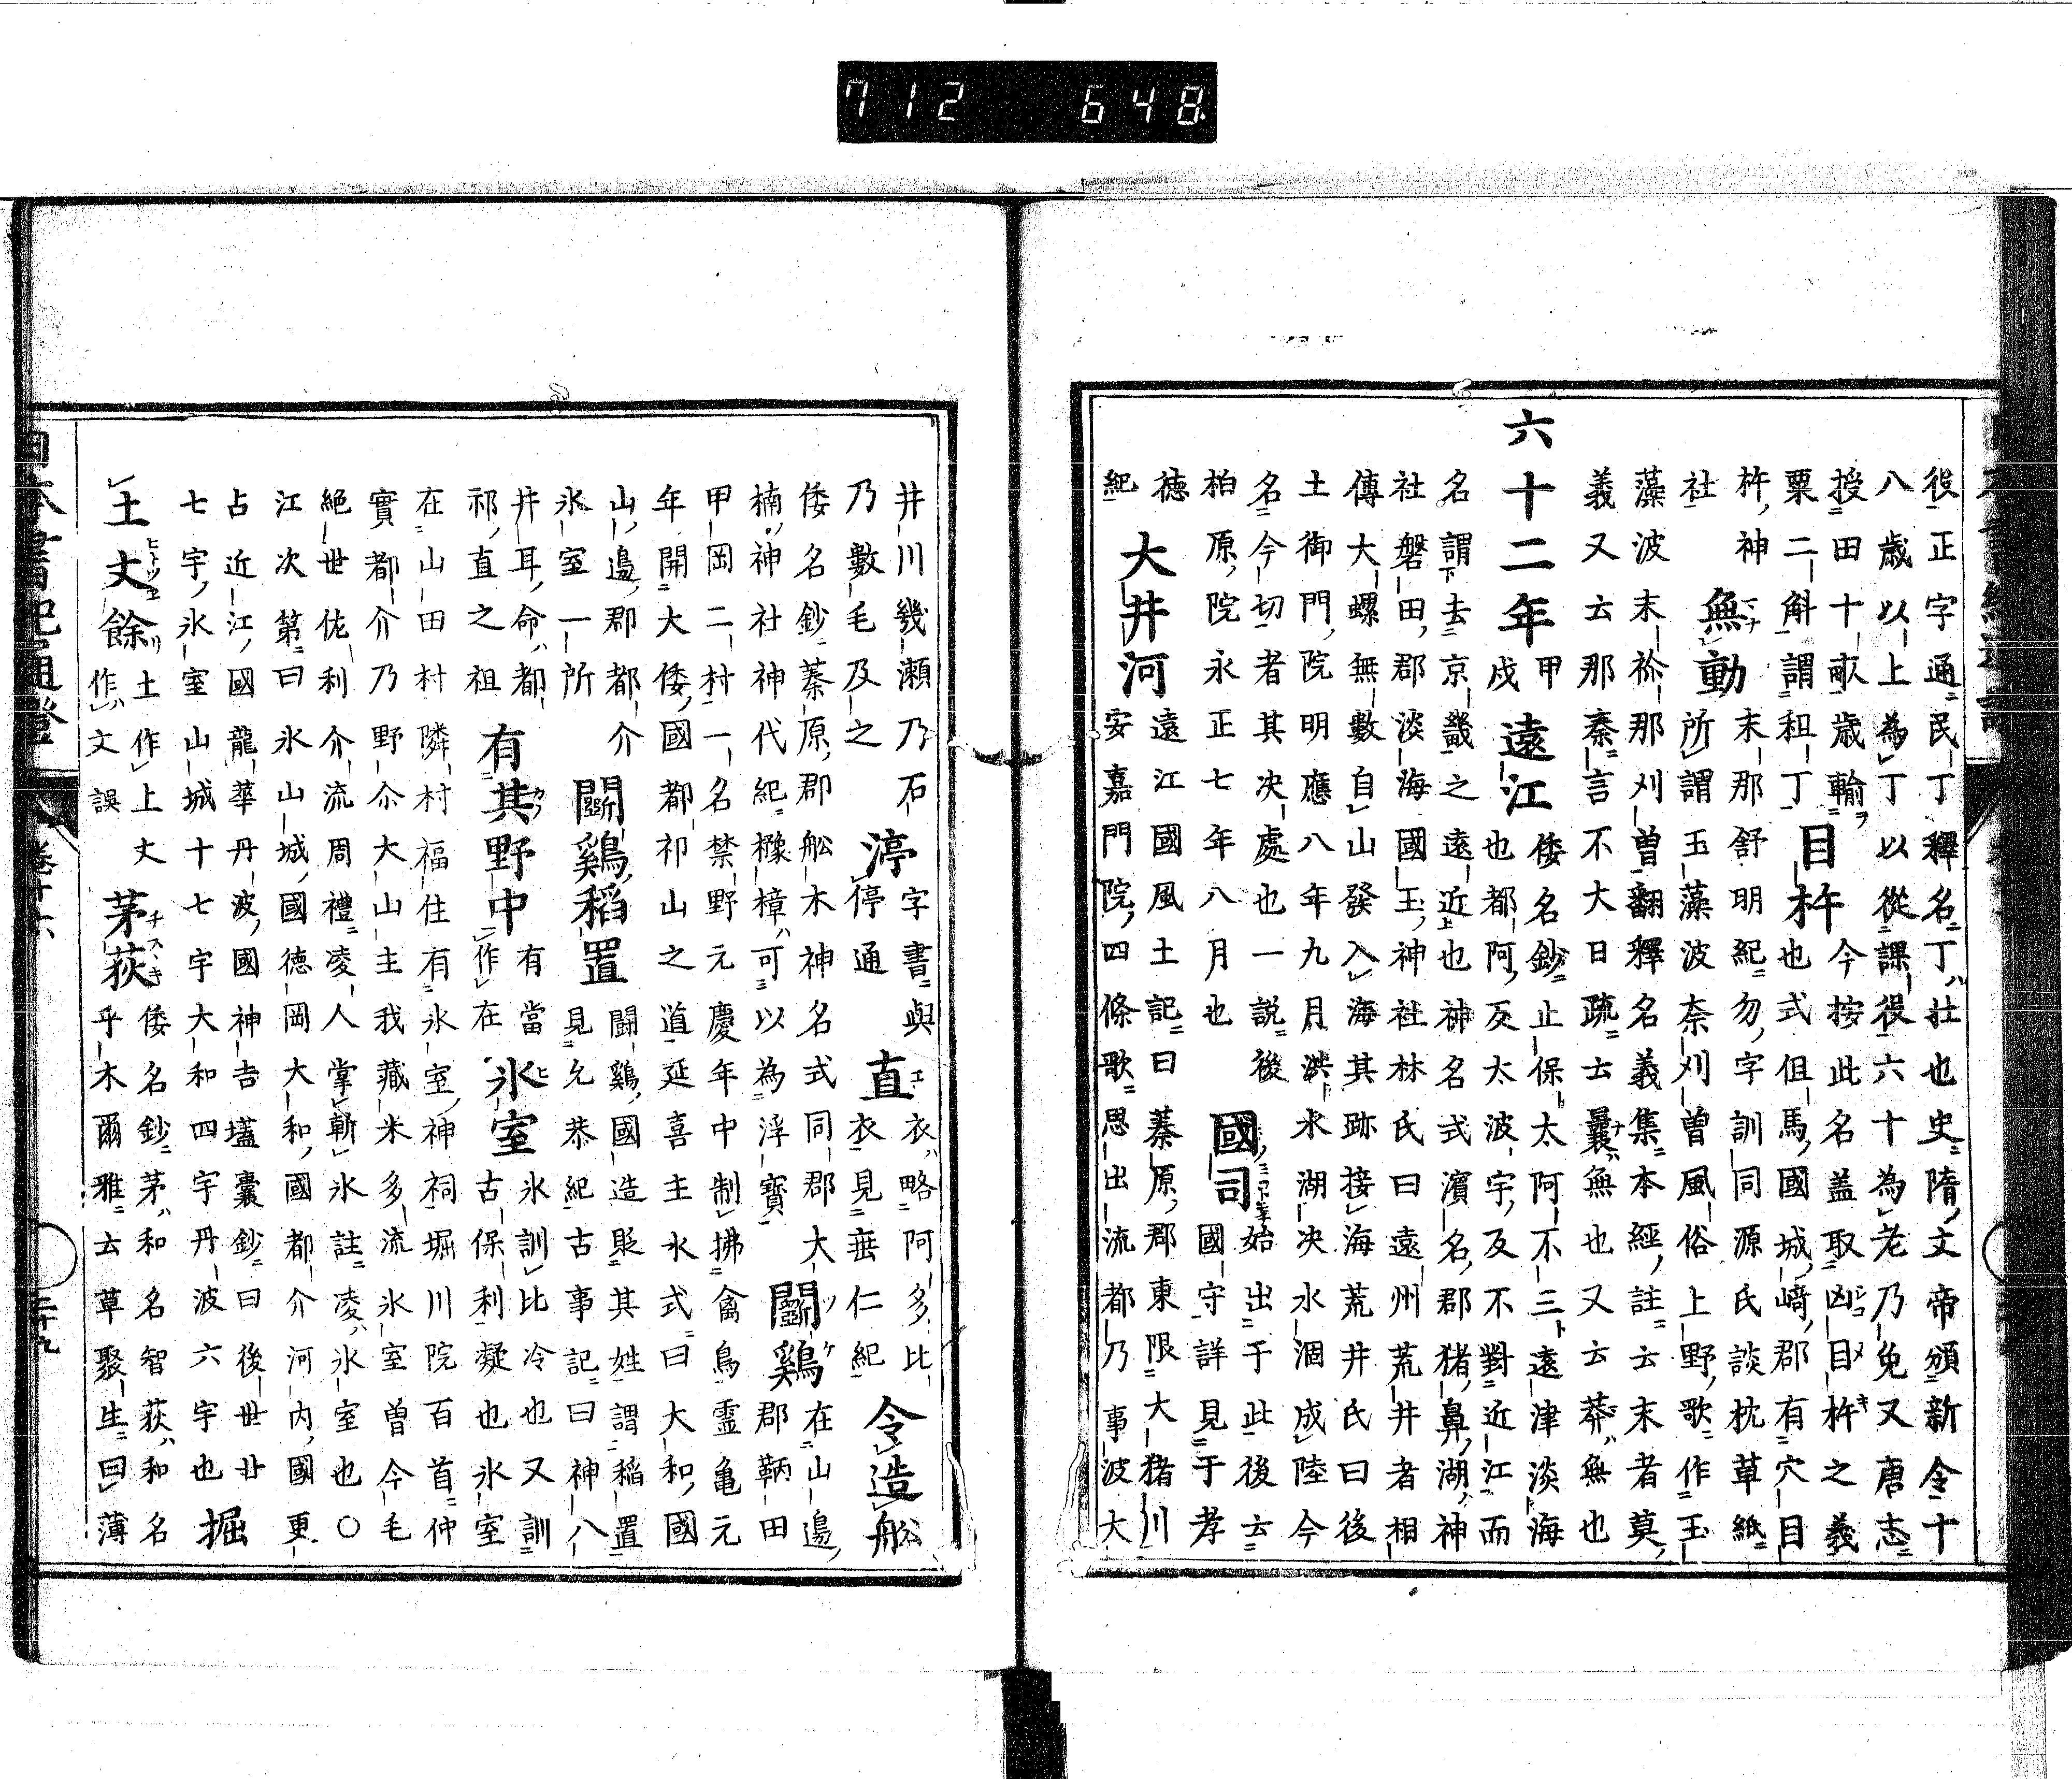 712 648
役正字通民丁釋名丁壮也史隋文帝頒新令十
八歳以上為丁以從課役六十為老乃免又唐志
授田十畝歳輸 今按此名盖取凶目杵之義
粟二斛謂租丁 目杵 也式但馬國城﨑郡有穴目
杵神 末那舒明紀勿字訓同源氏談枕草紙
社 無動 所謂玉藻波奈刈曽風俗上野歌作玉
藻波末衸那刈曽翻釋名義集本經註云末者莫
義又云那秦言不大日疏云曩無也又云莽無也
六十二年 甲戌 遠江 倭名鈔止保太阿不三遠津淡海
也都阿反太波宇反不對近江而
名謂去京畿之遠近也神名式濱名郡猪鼻湖神
社磐田郡淡海國玉神社林氏曰遠州荒井者相
傳大螺無數自山發入海其跡接海荒井氏曰後
土御門院明應八年九月洪水湖决水涸成陸今
名今切者其决處也一説後 始出于此後云
柏原院永正七年八月也 國司 國守詳見于孝
德 遠江國風土記曰蓁原郡東限大猪川
紀 大井河 安嘉門院四條歌思出流都乃事波大
井川幾瀬乃石 字書與 衣略阿多比
乃數毛及之 渟 停通 直 衣見垂仁紀 令造舩
倭名鈔蓁原郡舩木神名式同郡大 在山邊
楠神社神代紀櫲樟可以為浮寳 闘鷄 郡鞆田
甲岡二村一名禁野元慶年中制拂禽鳥霊亀元
年開大倭國都祁山之道延喜主水式曰大和國
山邊郡都介 闘鷄國造貶其姓謂稲置
氷室一所 闘鷄稲置 見允恭紀古事記曰神八
井耳命都 有當 氷訓比冷也又訓
祁直之祖 有其野中 作在 氷室 古保利凝也氷室
在山田村隣村福住有氷室神祠堀川院百首仲
實都介乃野尒大山主我藏米多流氷室曽今毛
絶世佐利介流周禮凌人掌斬氷註凌氷室也〇
江次第曰氷山城國德岡大和國都介河内國更
占近江國龍華丹波國神吉壒囊鈔曰後世廿
七字氷室山城十七字大和四字丹波六字也 掘
土作上丈 倭名鈔茅和名智荻和名
土丈餘 作文誤 茅荻 乎木爾雅云草聚生曰薄
日本書紀通證 卷十六 三十九